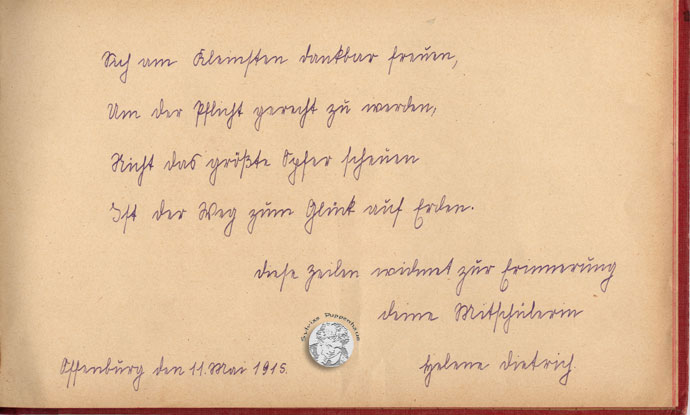 Sich am Kleinsten dankbar freuen,
Um der Pflicht gerecht zu werden,
Nicht das größte Opfer scheuen
Ist der Weg zum Glück auf Erden.
diese Zeilen widmet zur Erinnerung
deine Mitschülerin
Sylvias Puppenhaus
Offenburg den 11. Mai 1915.
Helene Dietrich.